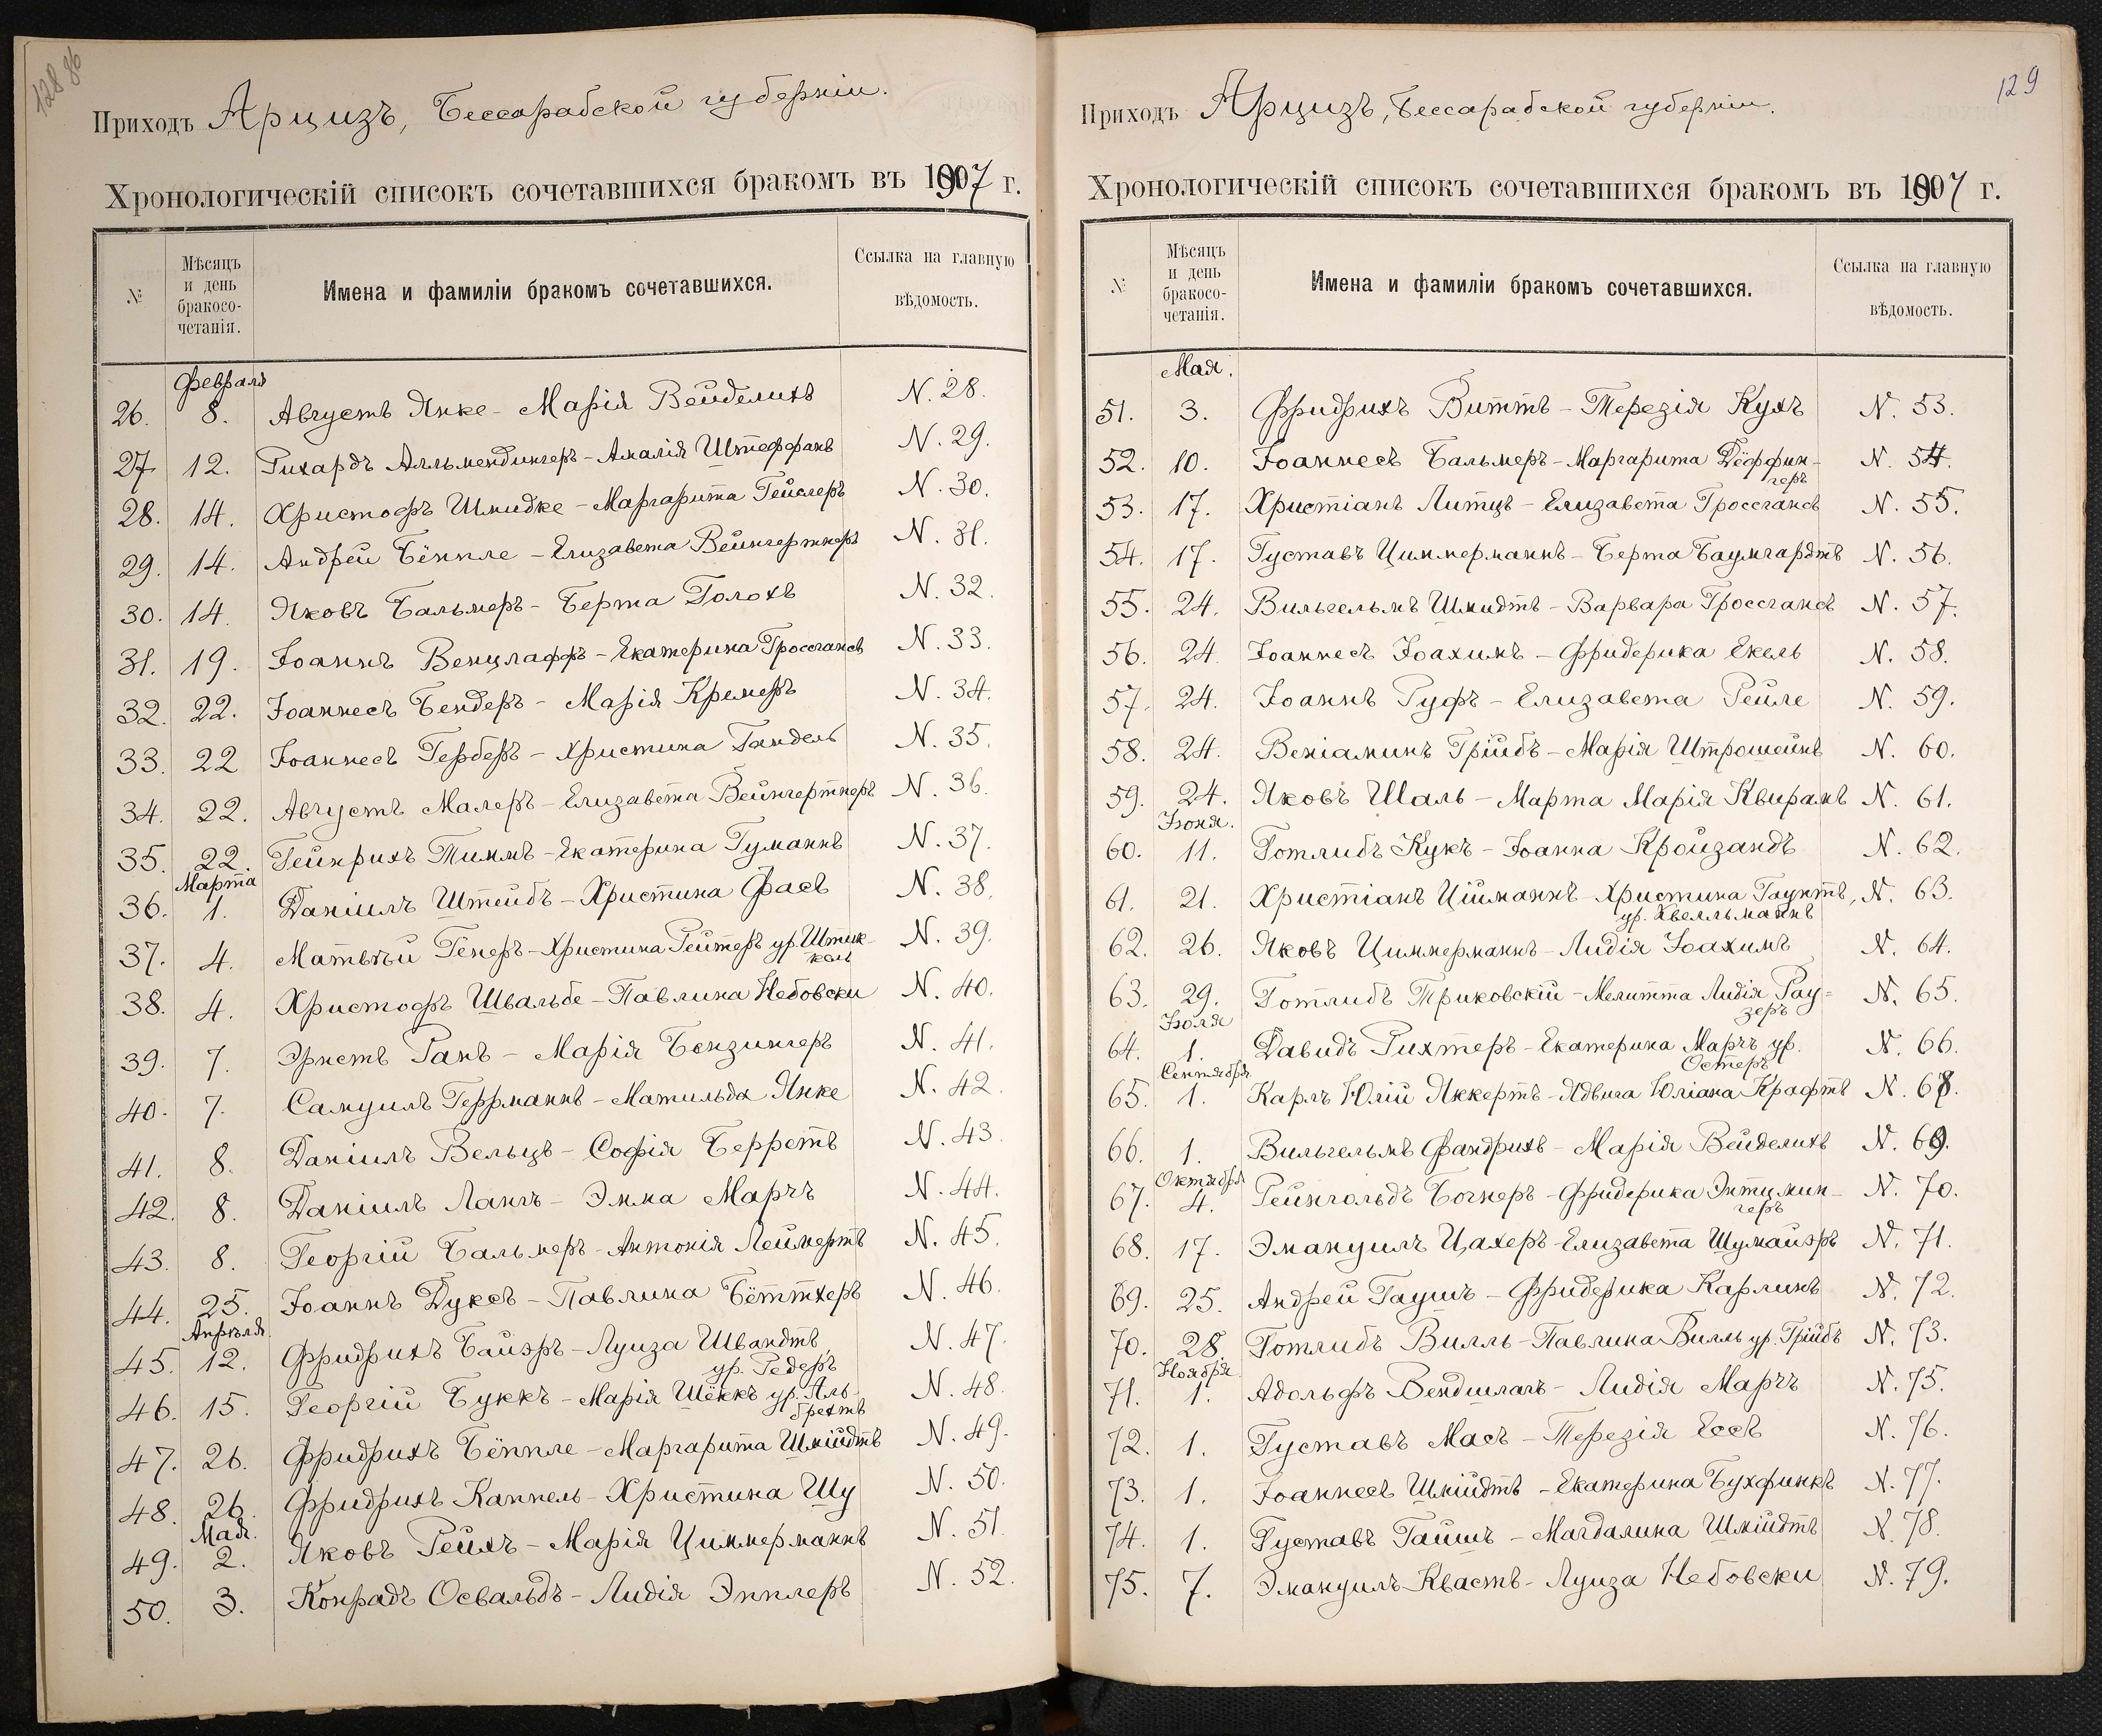 128 об
Приходъ Арцизъ, Бессарабской губерніи.
Хронологическій списокъ сочетавшихся бракомъ въ 1907 г.
№ Мѣсяцъ и день бракосо-четанія. Имена и фамиліи бракомъ сочетавшихся. Ссылка на главную вѣдомость.
Февраля
26. 8. Августъ Янке - Марія Вейделихъ N. 28.
27. 12. Рихардъ Алльмендингеръ - Амалія Штеффанъ N. 29.
28. 14. Христофъ Шмидке - Маргарита Гейслеръ N. 30.
29. 14. Андрей Бёппле - Елизавета Вейнгертнеръ N. 31.
30. 14. Яковъ Бальмеръ - Берта Голохъ N. 32.
31. 19. Іоаннъ Венцлаффъ - Екатерина Гроссгансъ N. 33.
32. 22. Іоаннесъ Бендеръ - Марія Кремеръ N. 34.
33. 22 Іоаннесъ Герберъ - Христина Гандель N. 35.
34. 22. Августъ Малеръ - Елизавета Вейнгертнеръ N. 36.
35. 22. Гейнрихъ Тиммъ - Екатерина Гуманнъ N. 37.
Марта
36. 1. Даніилъ Штейбъ - Христина Фасъ N. 38.
37. 4. Матвѣй Генеръ - Христина Рейтеръ ур. Штик-
кель N. 39.
38. 4. Христофъ Швальбе - Павлина Небовски N. 40.
39. 7. Эрнстъ Ранъ - Марія Бензингеръ N. 41.
40. 7. Самуилъ Геррманнъ - Матильда Янке N. 42.
41. 8. Даніилъ Вельцъ - Софія Берретъ N. 43.
42. 8. Даніилъ Лангъ - Эмма Марчъ N. 44.
43. 8. Георгій Бальмеръ - Антонія Леймертъ N. 45.
44. 25. Іоаннъ Дуксъ - Павлина Бёттхеръ N. 46.
Апрѣля.
45. 12. Фридрихъ Байэръ - Луиза Швандтъ,
ур. Редеръ N. 47.
46. 15. Георгій Буккъ - Марія Шёккъ ур. Аль-
брехтъ N. 48.
47. 26. Фридрихъ Бёппле - Маргарита Шмидтъ N. 49.
48. 26. Фридрихъ Каппель - Христина Шу N. 50.
Мая.
49. 2. Яковъ Рейхъ - Марія Циммерманнъ N. 51.
50. 3. Конрадъ Освальдъ - Лидія Эпплеръ N. 52.
129
Приходъ Арцизъ, Бессарабской губерніи.
Хронологическій списокъ сочетавшихся бракомъ въ 1907 г.
№ Мѣсяцъ и день бракосо-четанія. Имена и фамиліи бракомъ сочетавшихся. Ссылка на главную вѣдомость.
Мая.
51. 3. Фридрихъ Виттъ - Терезія Кухъ N. 53.
52. 10. Іоаннесъ Бальмеръ - Маргарита Дёффин-
геръ N. 54.
53. 17. Христіанъ Литцъ - Елизавета Гроссгансъ N. 55.
54. 17. Густавъ Циммерманнъ - Берта Баумгардтъ N. 56.
55. 24. Вильгельмъ Шмидтъ - Варвара Гроссгансъ N. 57.
56. 24. Іоаннесъ Іоахимъ - Фридерика Екель N. 58.
57. 24. Іоаннъ Руфъ - Елизавета Рейле N. 59.
58. 24. Веніаминъ Грійбъ - Марія Штрошейнъ N. 60.
59. 24. Яковъ Шаль - Марта Марія Квирамъ N. 61.
Іюня.
60. 11. Готлибъ Кукъ - Іоанна Кройзандъ N. 62.
61. 21. Христіанъ Ційманнъ - Христина Гаунтъ,
ур. Квелльманнъ N. 63.
62. 26. Яковъ Циммерманнъ - Лидія Іоахимъ N. 64.
63. 29. Готлибъ Триковскій - Мелитта Лидія Рау-
зеръ N. 65.
Іюля
64. 1. Давидъ Рихтеръ - Екатерина Марчъ ур.
Остеръ N. 66.
Сентября
65. 1. Карлъ Юлій Яккертъ - Ядвига Юліана Крафтъ N. 68.
66. 1. Вильгельмъ Фандрихъ - Марія Вейделихъ N. 69.
Октября
67. 4. Рейнгольдъ Богнеръ - Фридерика Энтцмин-
геръ N. 70.
68. 17. Эмануилъ Цахеръ - Елизавета Шумайэръ N. 71.
69. 25. Андрей Гаушъ - Фридерика Карлинъ N. 72.
70. 28. Готлибъ Вилль - Павлина Вилль ур. Грійбъ N. 73.
Ноября
71. 1. Адольфъ Вендшлагъ - Лидія Марчъ N. 75.
72. 1. Густавъ Масъ - Терезія Ессъ N. 76.
73. 1. Іоаннесъ Шмійдтъ - Екатерина Бухфинкъ N. 77.
74. 1. Густавъ Гайшъ - Магдалина Шмійдтъ N. 78.
75. 7. Эмануилъ Квастъ - Луиза Небовски N. 79.